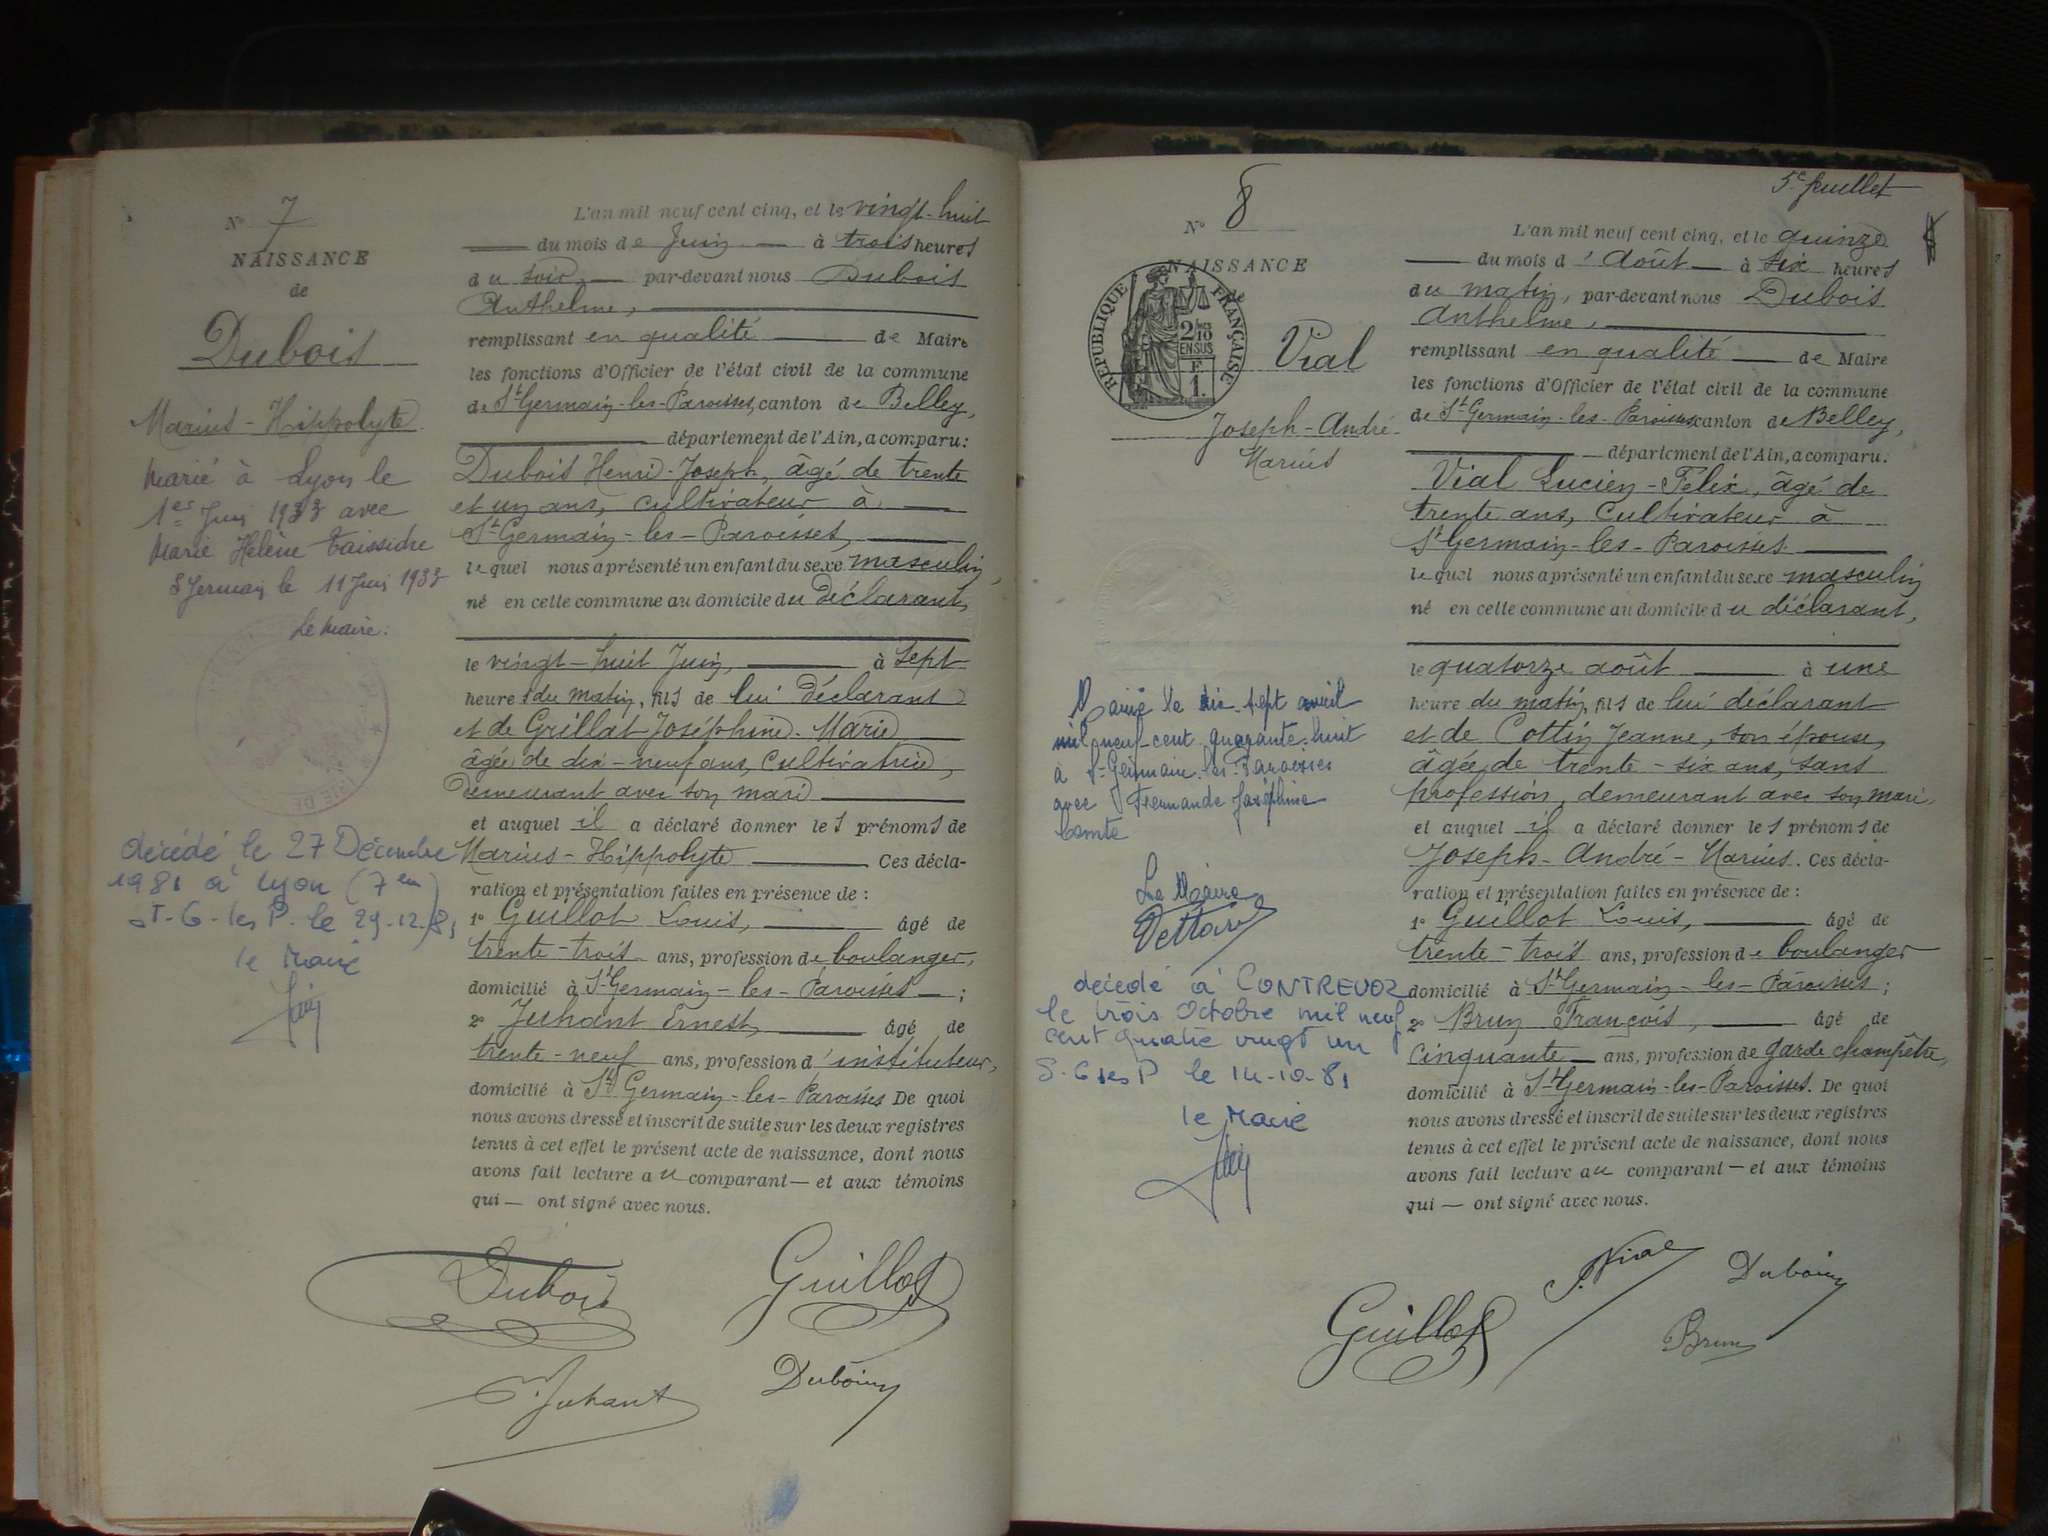 N° 7
NAISSANCE
de
Dubois
Marius-Hippolyte
Marié à Lyon le
1er Juin 1933 avec
Marie Helène
St Germain le 11 Juin 1933
Le Maire:
décédé le 27 Décembre
1981 à Lyon (7em)
ST-G-les P. le 29-12-81
le Maire
L'an mil neuf cent cinq, et le vingt-huit
du mois de Juin à trois heures
du soir, par-devant nous Dubois
Anthelme,
remplissant en qualité de Maire
les fonctions d'Officier de l'état civil de la commune
de St Germain-les-Paroisses, canton de Belley,
département de l'Ain, a comparu:
Dubois Henri-Joseph, âgé de trente
et un ans, cultivateur à
St Germain-les-Paroisses,
lequel nous a présenté un enfant du sexe masculin,
né en cette commune au domicile du déclarant,
le vingt-huit Juin, à sept
heures du matin, fils de lui déclarant
et de Grillat Joséphine-Marie
âgée de dix-neuf ans, cultivatrice,
demeurant avec son mari
et auquel il a déclaré donner les prénoms de
Marius-Hippolyte Ces décla-
ration et présentation faites en présence de :
1° Guillot Louis, âgé de
trente-trois ans, profession de boulanger,
domicilié à St Germain-les-Paroisses ;
2° Juhant Ernest, âgé de
trente-neuf ans, profession d'instituteur,
domicilié à St Germain-les-Paroisses De quoi
nous avons dressé et inscrit de suite sur les deux registres
tenus à cet effet le présent acte de naissance, dont nous
avons fait lecture au comparant — et aux témoins
qui — ont signé avec nous.
Dubois Guillot
Juhant Dubois
5e feuillet
N° 8
NAISSANCE
de
RÉPUBLIQUE FRANÇAISE
2/10
EN SUS
F
1.
Vial
Joseph-André-
Marius
Marié le dix-sept avril
mil neuf-cent quarante-huit
à St-Germain-les-Paroisses
avec Fernande Joséphine
Comte
Le Maire
décédé à CONTREVOZ
le trois Octobre mil neuf
cent quatre vingt un
S-G les P le 14-10-81
le Maire
L'an mil neuf cent cinq, et le quinze
du mois d'Août à six heures
du matin, par-devant nous Dubois
Anthelme,
remplissant en qualité de Maire
les fonctions d'Officier de l'état civil de la commune
de St Germain-les-Paroisses canton de Belley,
département de l'Ain, a comparu.
Vial Lucien-Félix, âgé de
trente ans, cultivateur à
St Germain-les-Paroisses
lequel nous a présenté un enfant du sexe masculin
né en cette commune au domicile du déclarant,
le quatorze août à une
heure du matin, fils de lui déclarant
et de Cottin Jeanne, son épouse,
âgée de trente-six ans, sans
profession, demeurant avec son mari,
et auquel il a déclaré donner les prénoms de
Joseph-André-Marius. Ces décla-
ration et présentation faites en présence de :
1° Guillot Louis, âgé de
trente-trois ans, profession de boulanger
domicilié à St Germain-les-Paroisses ;
2° Brun François, âgé de
cinquante ans, profession de garde champêtre,
domicilié à St Germain-les-Paroisses. De quoi
nous avons dressé et inscrit de suite sur les deux registres
tenus à cet effet le présent acte de naissance, dont nous
avons fait lecture au comparant — et aux témoins
qui — ont signé avec nous.
Vial Dubois
Guillot Brun